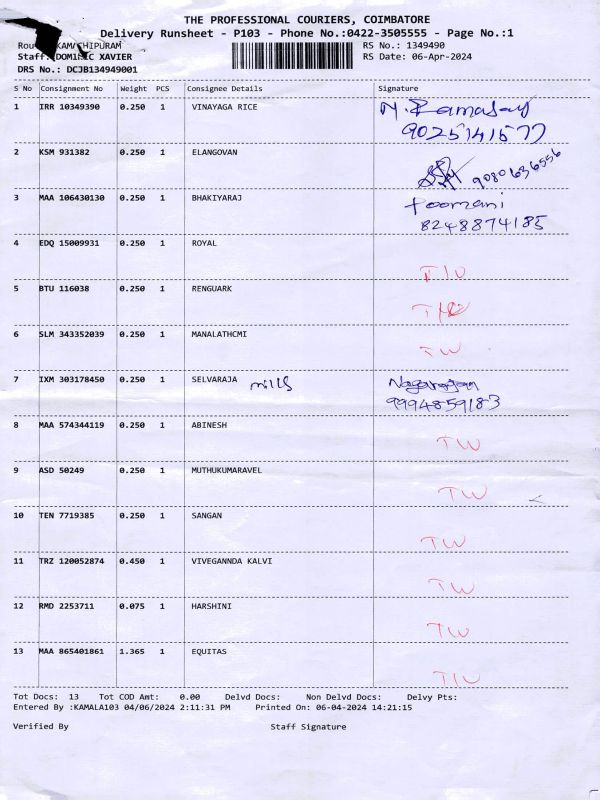 THE PROFESSIONAL COURIERS, COIMBATORE
Delivery Runsheet - P103 - Phone No.:0422-3505555 - Page No.:1
RS No.: 1349490
Staff: XAVIER RS Date: 06-Apr-2024
DRS No.: DCJB134949001
S No Consignment No Weight PCS Consignee Details Signature
1 IRR 10349390 0.250 1 VINAYAGA RICE
9025141577
2 KSM 931382 0.250 1 ELANGOVAN
9080636556
3 MAA 106430130 0.250 1 BHAKIYARAJ Poomani
8248874185
4 EDQ 15009931 0.250 1 ROYAL
5 BTU 116038 0.250 1 RENGUARK
6 SLM 343352039 0.250 1 MANALATHCMI
TW
7 IXM 303178450 0.250 1 SELVARAJA mills Nagarajan
9994859183
8 MAA 574344119 0.250 1 ABINESH
TW
9 ASD 50249 0.250 1 MUTHUKUMARAVEL
TW
10 TEN 7719385 0.250 1 SANGAN
TW
11 TRZ 120052874 0.450 1 VIVEGANNDA KALVI
TW
12 RMD 2253711 0.075 1 HARSHINI
TW
13 MAA 865401861 1.365 1 EQUITAS
TW
Tot Docs: 13 Tot COD Amt: 0.00 Delvd Docs: Non Delvd Docs: Delvy Pts:
Entered By :KAMALA103 04/06/2024 2:11:31 PM Printed On: 06-04-2024 14:21:15
Verified By Staff Signature